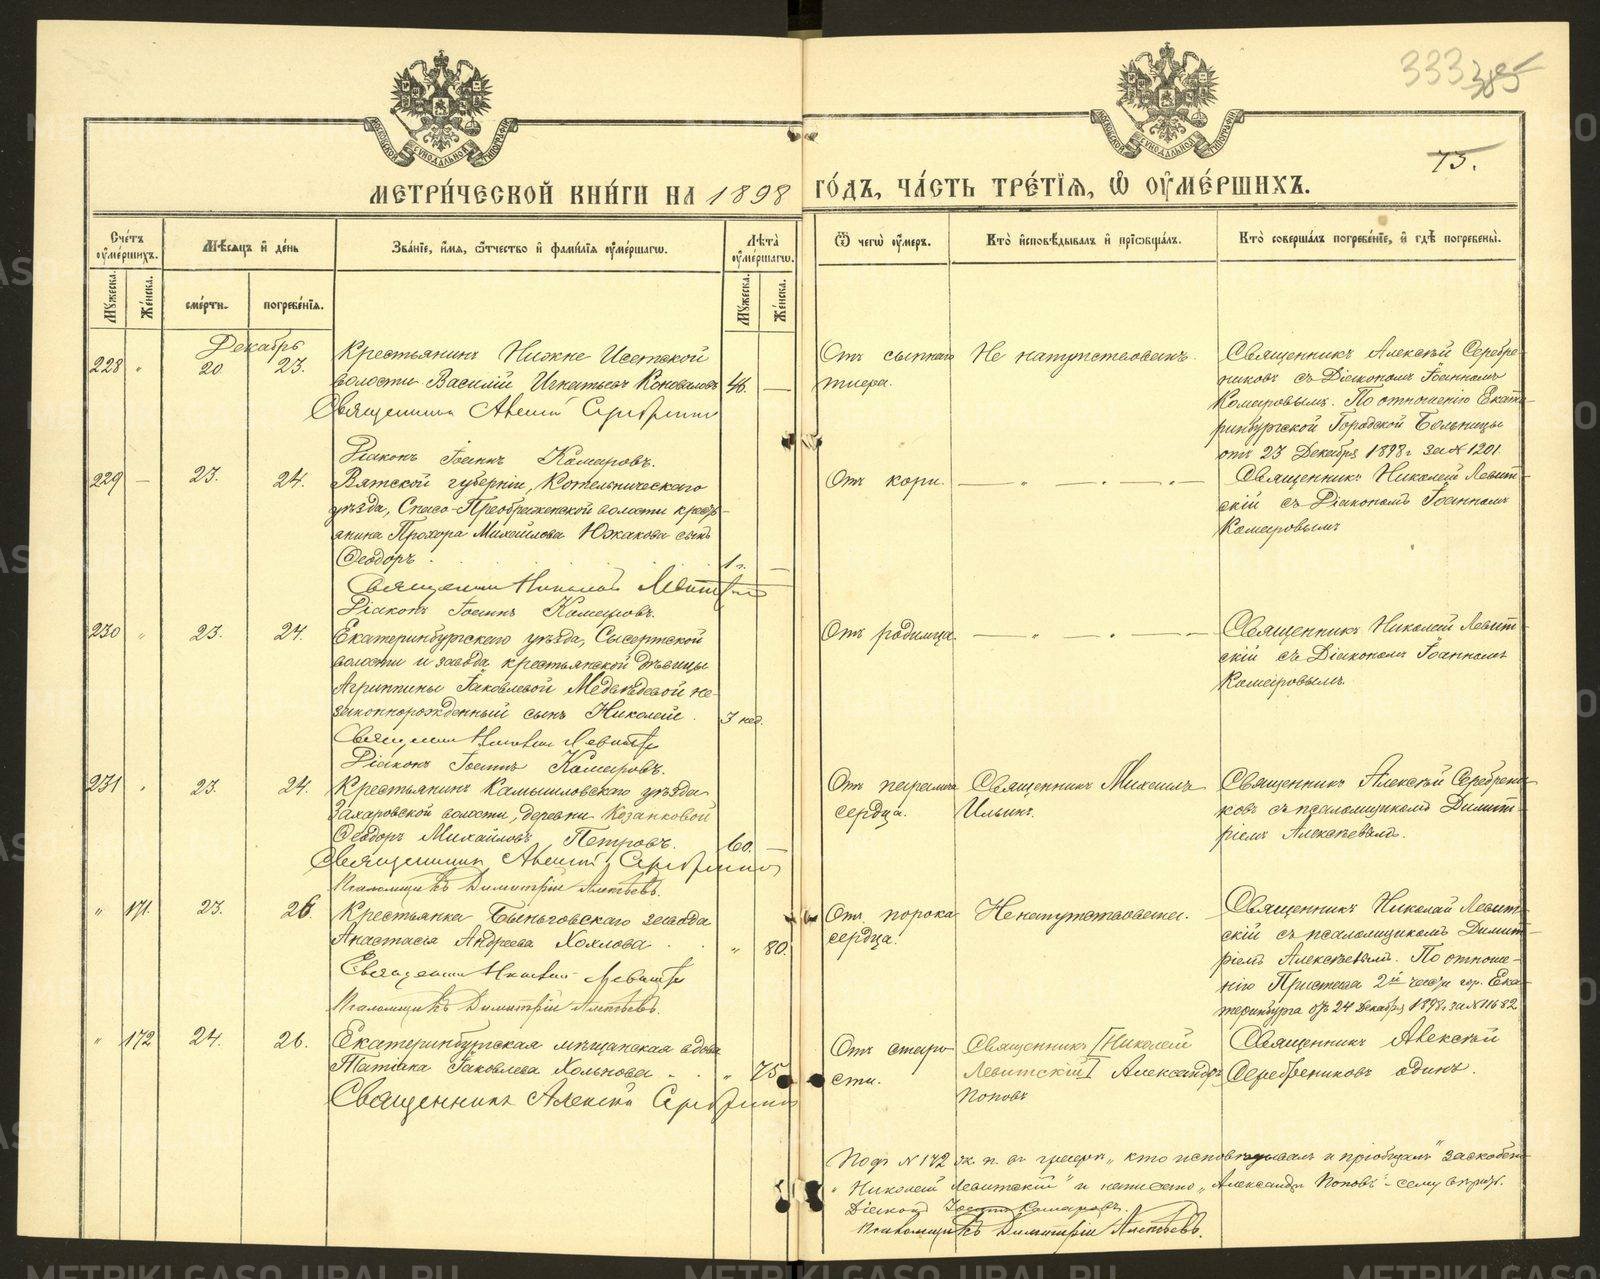 333 385
75.
МЕТРИ́ЧЕСКОЙ КНИ́ГИ НА 1898 ГО́ДЪ, ЧА́СТЬ ТРЕ́ТІѦ, Ѿ ОУМЕ́РШИХЪ.
Счетъ оумершихъ.
Мужеска.
Женска.
Мѣсяцъ и день
смерти.
погребенія.
Званіе, имя, отчество и фамилія оумершагѡ.
Лѣта оумершагѡ.
Мужеска.
Женска.
Ѿ чегѡ оумеръ.
Кто исповѣдывалъ и пріобщалъ.
Кто совершалъ погребеніе, и гдѣ погребены.
Декабрь
228 " 20. 23.
Крестьянинъ Нижне Исетской
волости Василій Игнатьевъ Коноваловъ 48. —
Священникъ Алексій Серебрениковъ
Діаконъ Іоаннъ Комаровъ.
Отъ сыпнаго
тифа.
Не напутствованъ.
Священникъ Алексѣй Серебре-
никовъ съ Діакономъ Іоанномъ
Комаровымъ. По отношенію Екате-
ринбургской Городской Больницы
отъ 23 Декабря 1898 г за № 1201.
229 — 23. 24.
Вятской губерніи, Котельническаго
уѣзда, Спасо-Преображенской волости кресть-
янина Прохора Михайлова Южакова сынъ
Ѳеодоръ 1 г. —
Священникъ Николай Левитскій
Діаконъ Іоаннъ Комаровъ.
Отъ кори.
— " — " — " —
Священникъ Николай Левит-
скій съ Діакономъ Іоанномъ
Комаровымъ
230 " 23. 24.
Екатеринбургскаго уѣзда, Сысертской
волости и завода крестьянской дѣвицы
Агриппины Іаковлевой Медвѣдевой не-
законнорожденный сынъ Николай. 3 нед.
Священникъ Николай Левитскій
Діаконъ Іоаннъ Комаровъ.
Отъ родимца.
— " — " — " —
Священникъ Николай Левит-
скій съ Діакономъ Іоанномъ
Комаровымъ.
231 " 23. 24.
Крестьянинъ Камышловскаго уѣзда
Захаровской волости, деревни Козанковой
Ѳеодоръ Михайловъ Петровъ. 60. —
Священникъ Алексій Серебрениковъ
Псаломщикъ Димитрій Алексѣевъ.
Отъ паралича
сердца.
Священникъ Михаилъ
Ильинъ.
Священникъ Алексѣй Серебрени-
ковъ съ псаломщикомъ Димит-
ріемъ Алексѣевымъ.
" 171. 23. 26.
Крестьянка Быньговскаго завода
Анастасія Андреева Хохлова " 80.
Священникъ Николай Левитскій
Псаломщикъ Димитрій Алексѣевъ.
Отъ порока
сердца.
Не напутствована.
Священникъ Николай Левит-
скій съ псаломщикомъ Димит-
ріемъ Алексѣевымъ. По отноше-
нію Пристава 2й части гор. Ека-
теринбурга отъ 24 Декабря 1898 г за № 11682
" 172 24. 26.
Екатеринбургская мѣщанская вдова
Татіана Іаковлева Хольнова " 75
Священникъ Алексій Серебрениковъ
Отъ старо-
сти.
Священникъ [Николай
Левитскій] Александръ
Поповъ
Священникъ Алексѣй
Серебрениковъ одинъ.
Подъ № 172 ж. п. въ графѣ „кто исповѣдывалъ и пріобщалъ" заскоблено
„Николай Левитскій" и написано „Александръ Поповъ" - сему вѣрить.
Діаконъ Іоаннъ Комаровъ.
Псаломщикъ Димитрій Алексѣевъ.
METRIKI.GASO-URAL.RU